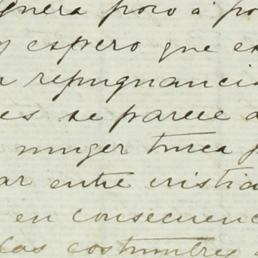 nera poco a po
y espero que es
repugnancia
es se parece a
muger turca
ar entre cristia
en consecuenc
las costumbres